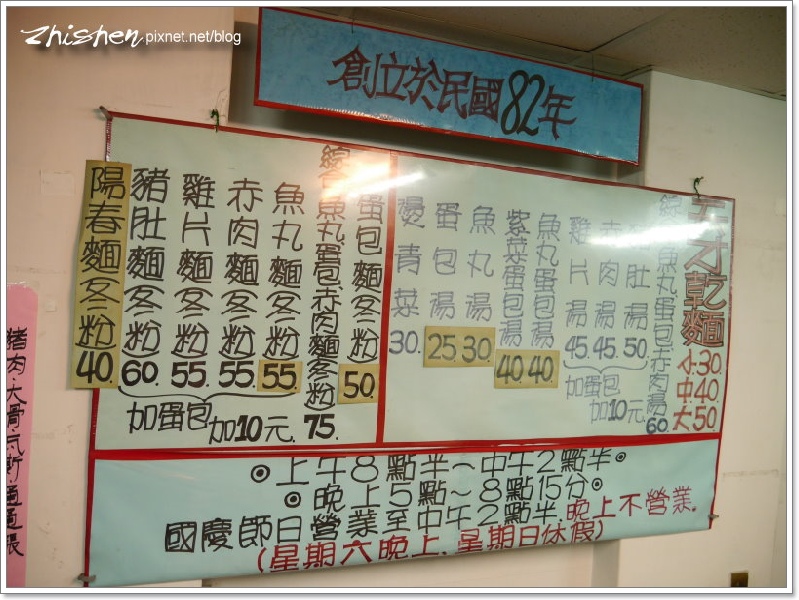 zhishen.pixnet.net/blog
創立於民國82年
天才乾麵
小30.
中40.
大50.
綜合魚丸蛋包赤肉湯60.
豬肚湯50.
赤肉湯45.
雞片湯45.
加蛋包加10元.
魚丸蛋包湯40.
紫菜蛋包湯40.
魚丸湯30.
蛋包湯25.
燙青菜30.
蛋包麵(冬粉)50.
綜合魚丸、蛋包、赤肉麵(冬粉)75.
魚丸麵(冬粉)55.
赤肉麵(冬粉)55.
雞片麵(冬粉)55.
豬肚麵(冬粉)60.
加蛋包加10元.
陽春麵(冬粉)40.
◎上午8點半~中午2點半◎
◎晚上5點~8點15分◎
國慶節日營業至中午2點半.晚上不營業.
(星期六晚上、星期日休假)
豬肉.大骨.瓦斯.通通漲